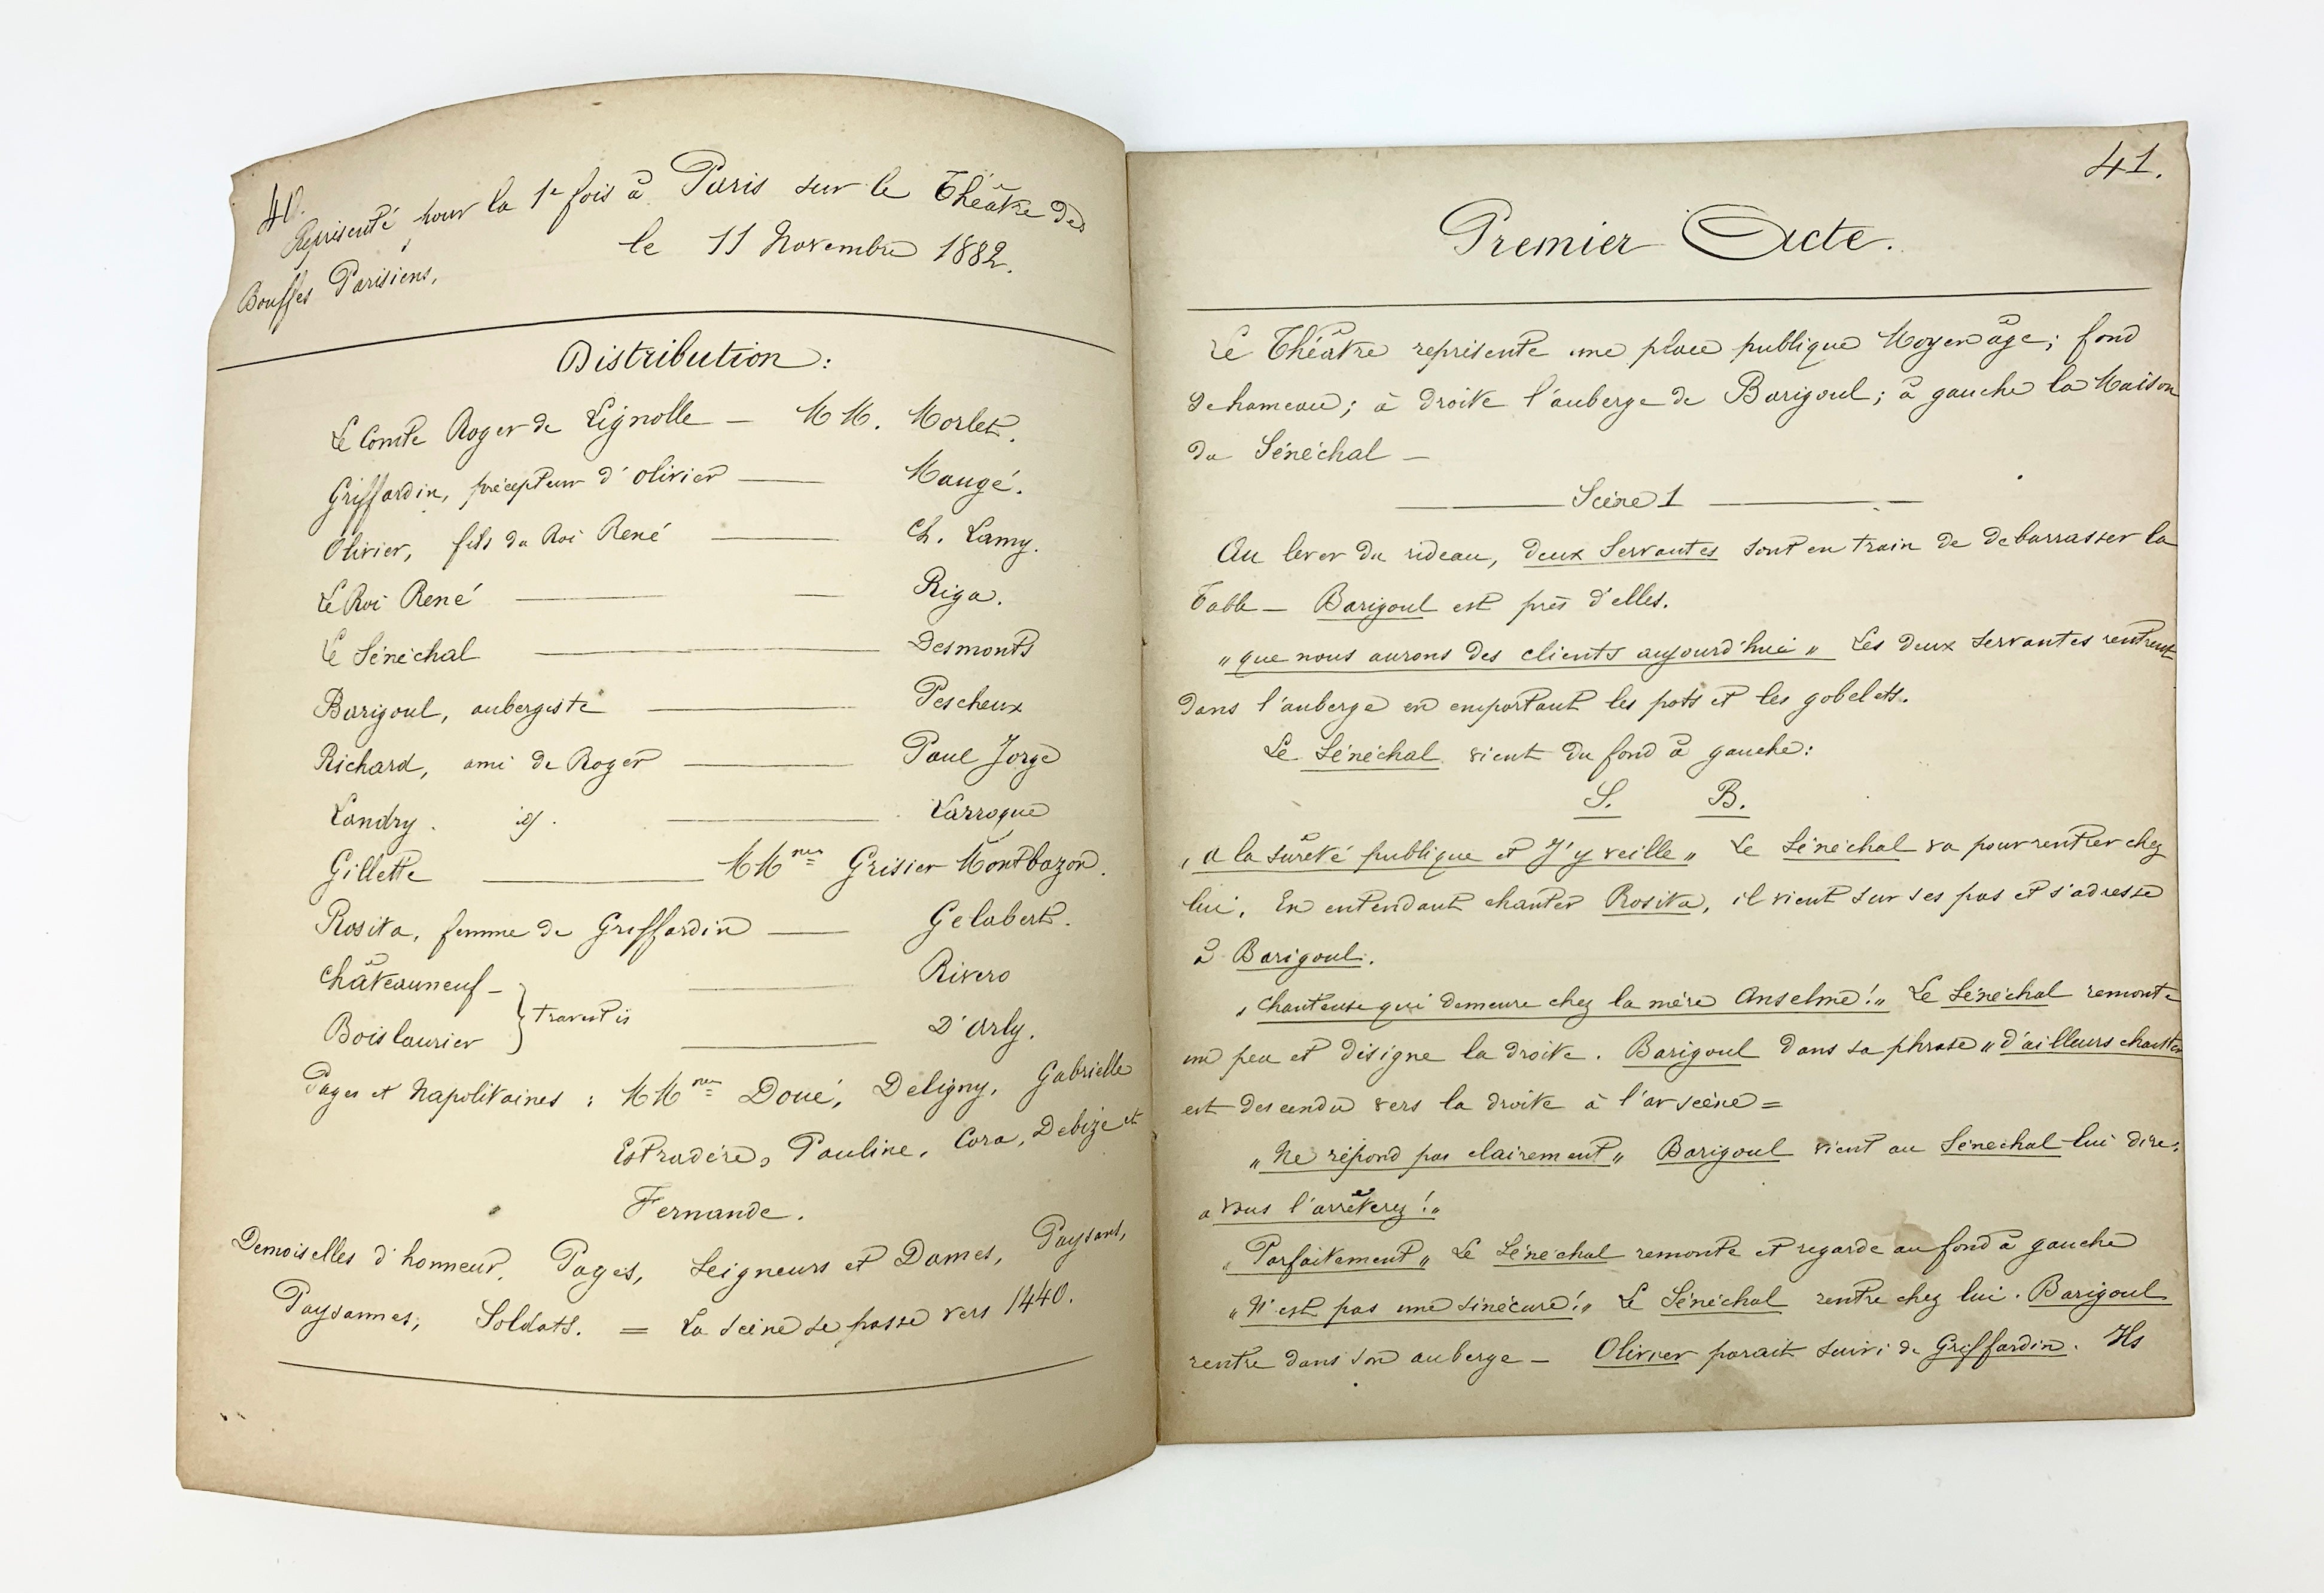 40.
Représenté pour la 1e fois à Paris sur le Théâtre des
Bouffes Parisiens, le 11 Novembre 1882.
Distribution:
Le Comte Roger de Lignolle — MM. Morlet.
Griffardin, précepteur d'Olivier — Maugé.
Olivier, fils du Roi René — Ch. Lamy.
Le Roi René — — Riga.
Le Sénéchal — Desmonts
Barigoul, aubergiste — Pescheux
Richard, ami de Roger — Paul Jorge
Landry. id. — Larroque
Gillette — MMmes Grisier Montbazon.
Rosita, femme de Griffardin — Gelabert.
Châteauneuf — } travestis — Rivero
Boislaurier — D'Arly.
Pages et Napolitaines : MMmes Doué, Deligny, Gabrielle
Estradère, Pauline, Cora, Debize et
Fernande.
Demoiselles d'honneur, Pages, Seigneurs et Dames, Paysans,
Paysannes, Soldats. = La scène se passe vers 1440.
41.
Premier Acte.
Le Théâtre représente une place publique Moyen âge; fond
de hameau; à droite l'auberge de Barigoul; à gauche la Maison
du Sénéchal —
— Scène 1 —
Au lever du rideau, deux Servantes sont en train de debarrasser la
Table — Barigoul est près d'elles.
"que nous aurons des clients aujourd'hui" Les deux servantes rentrent
dans l'auberge en emportant les pots et les gobelets.
Le Sénéchal vient du fond à gauche:
S. B.
"a la sûreté publique et J'y veille" Le Sénéchal va pour rentrer chez
lui. En entendant chanter Rosita, il vient sur ses pas et s'adresse
à Barigoul.
"chanteuse qui demeure chez la mère Anselme!" Le Sénéchal remonte
un peu et désigne la droite. Barigoul dans sa phrase "d'ailleurs chanter
est descendu vers la droite à l'av scène =
"Ne répond pas clairement" Barigoul vient au Sénéchal lui dire:
"vous l'arrêterez!"
"Parfaitement" Le Sénéchal remonte et regarde au fond à gauche
"N'est pas une sinécure!" Le Sénéchal rentre chez lui. Barigoul
rentre dans son auberge — Olivier parait suivi de Griffardin. Ils